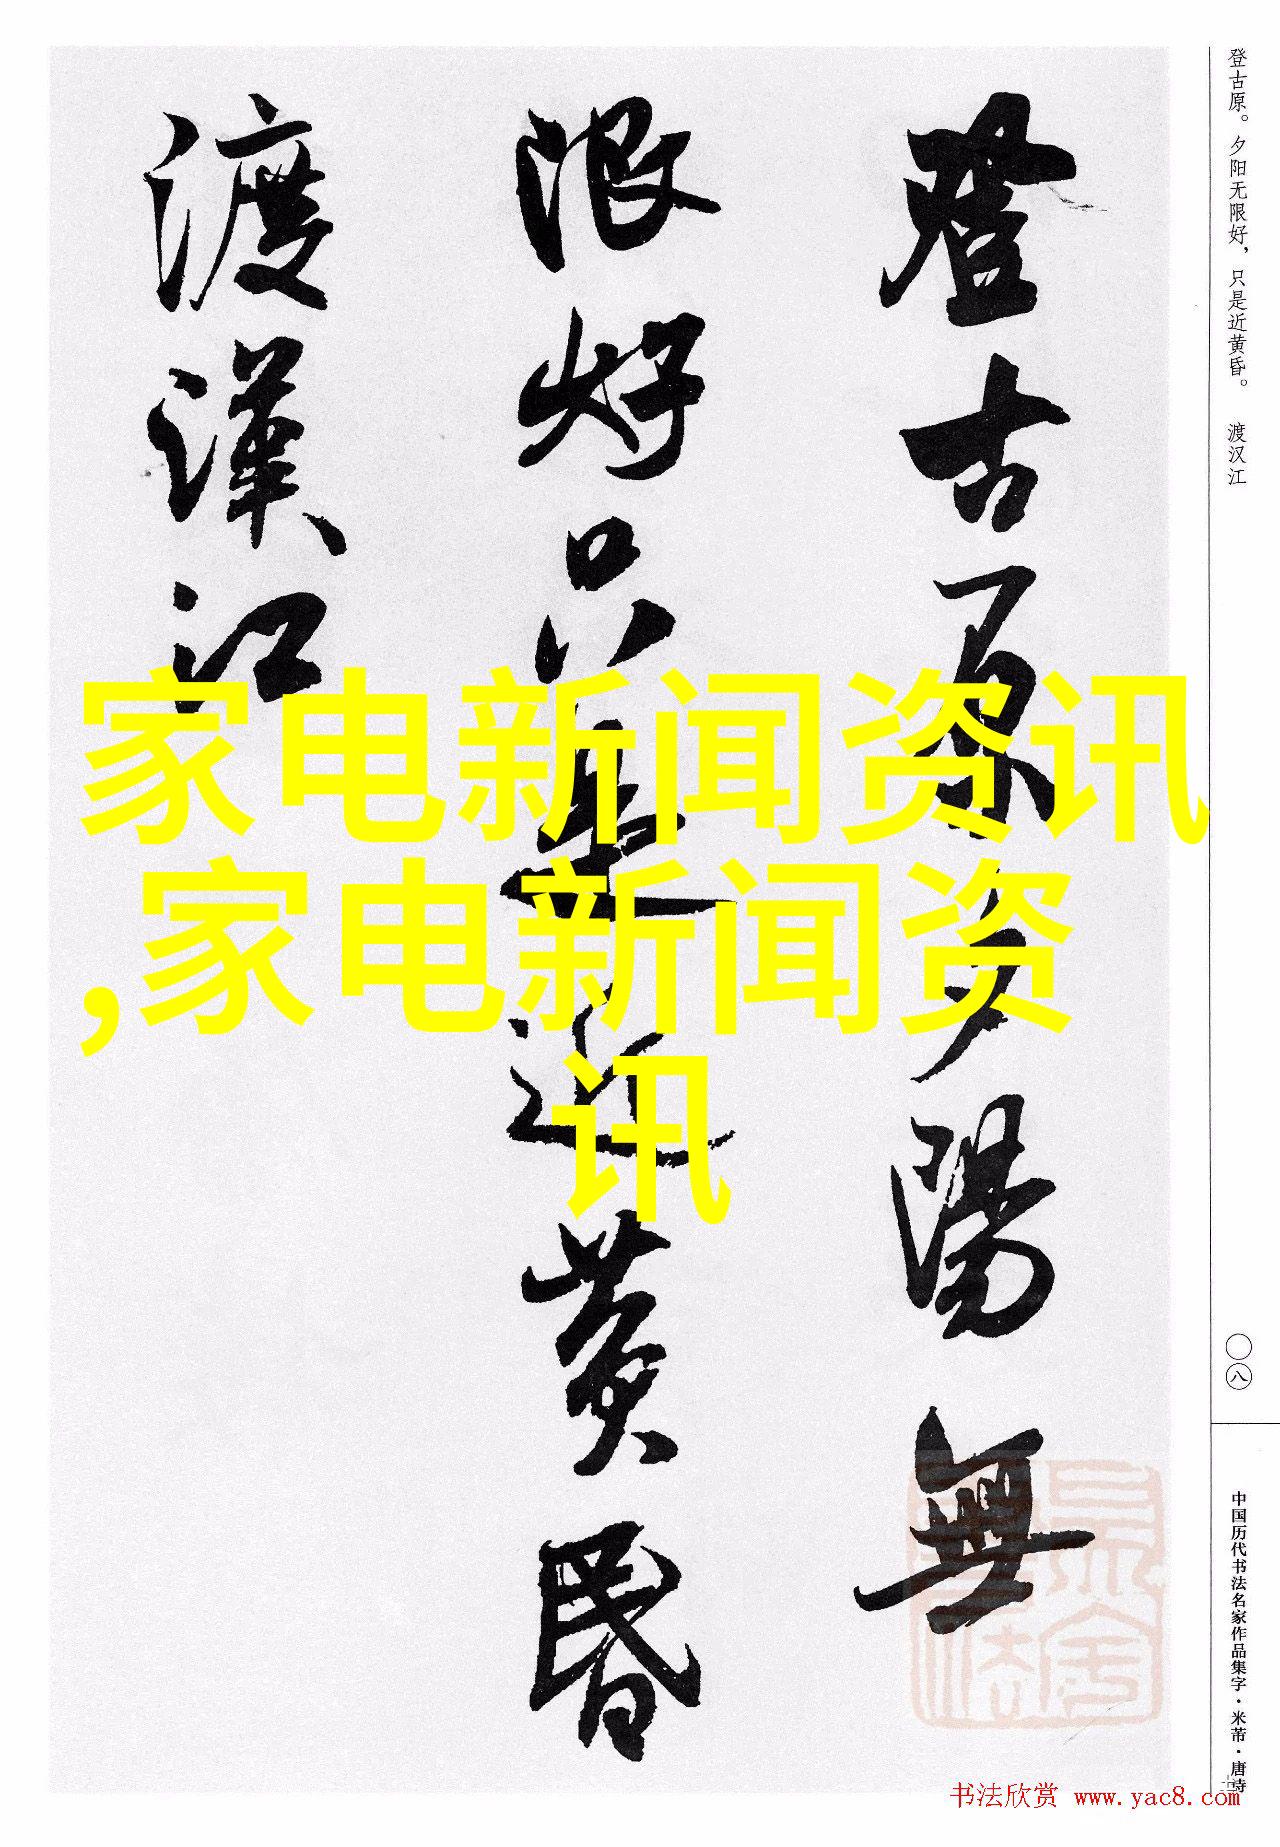 登古原夕陽無
限好只是近黄昏
渡漢江
登古原。夕阳无限好，只是近黄昏。 渡汉江
家电新闻资讯
,家电新闻资
讯
〇八
中国历代书法名家作品集字·米芾·唐诗
书法欣赏 www.yac8.com